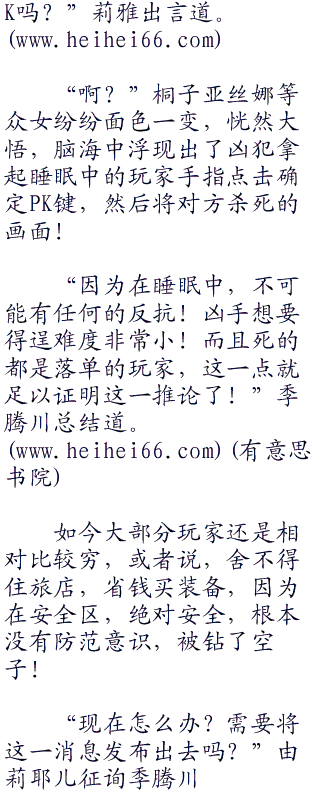 K吗？”莉雅出言道。
(www.heihei66.com)
“啊？”桐子亚丝娜等
众女纷纷面色一变，恍然大
悟，脑海中浮现出了凶犯拿
起睡眠中的玩家手指点击确
定PK键，然后将对方杀死的
画面！
“因为在睡眠中，不可
能有任何的反抗！凶手想要
得逞难度非常小！而且死的
都是落单的玩家，这一点就
足以证明这一推论了！”季
腾川总结道。
(www.heihei66.com)(有意思
书院)
如今大部分玩家还是相
对比较穷，或者说，舍不得
住旅店，省钱买装备，因为
在安全区，绝对安全，根本
没有防范意识，被钻了空
子！
“现在怎么办？需要将
这一消息发布出去吗？”由
莉耶儿征询季腾川